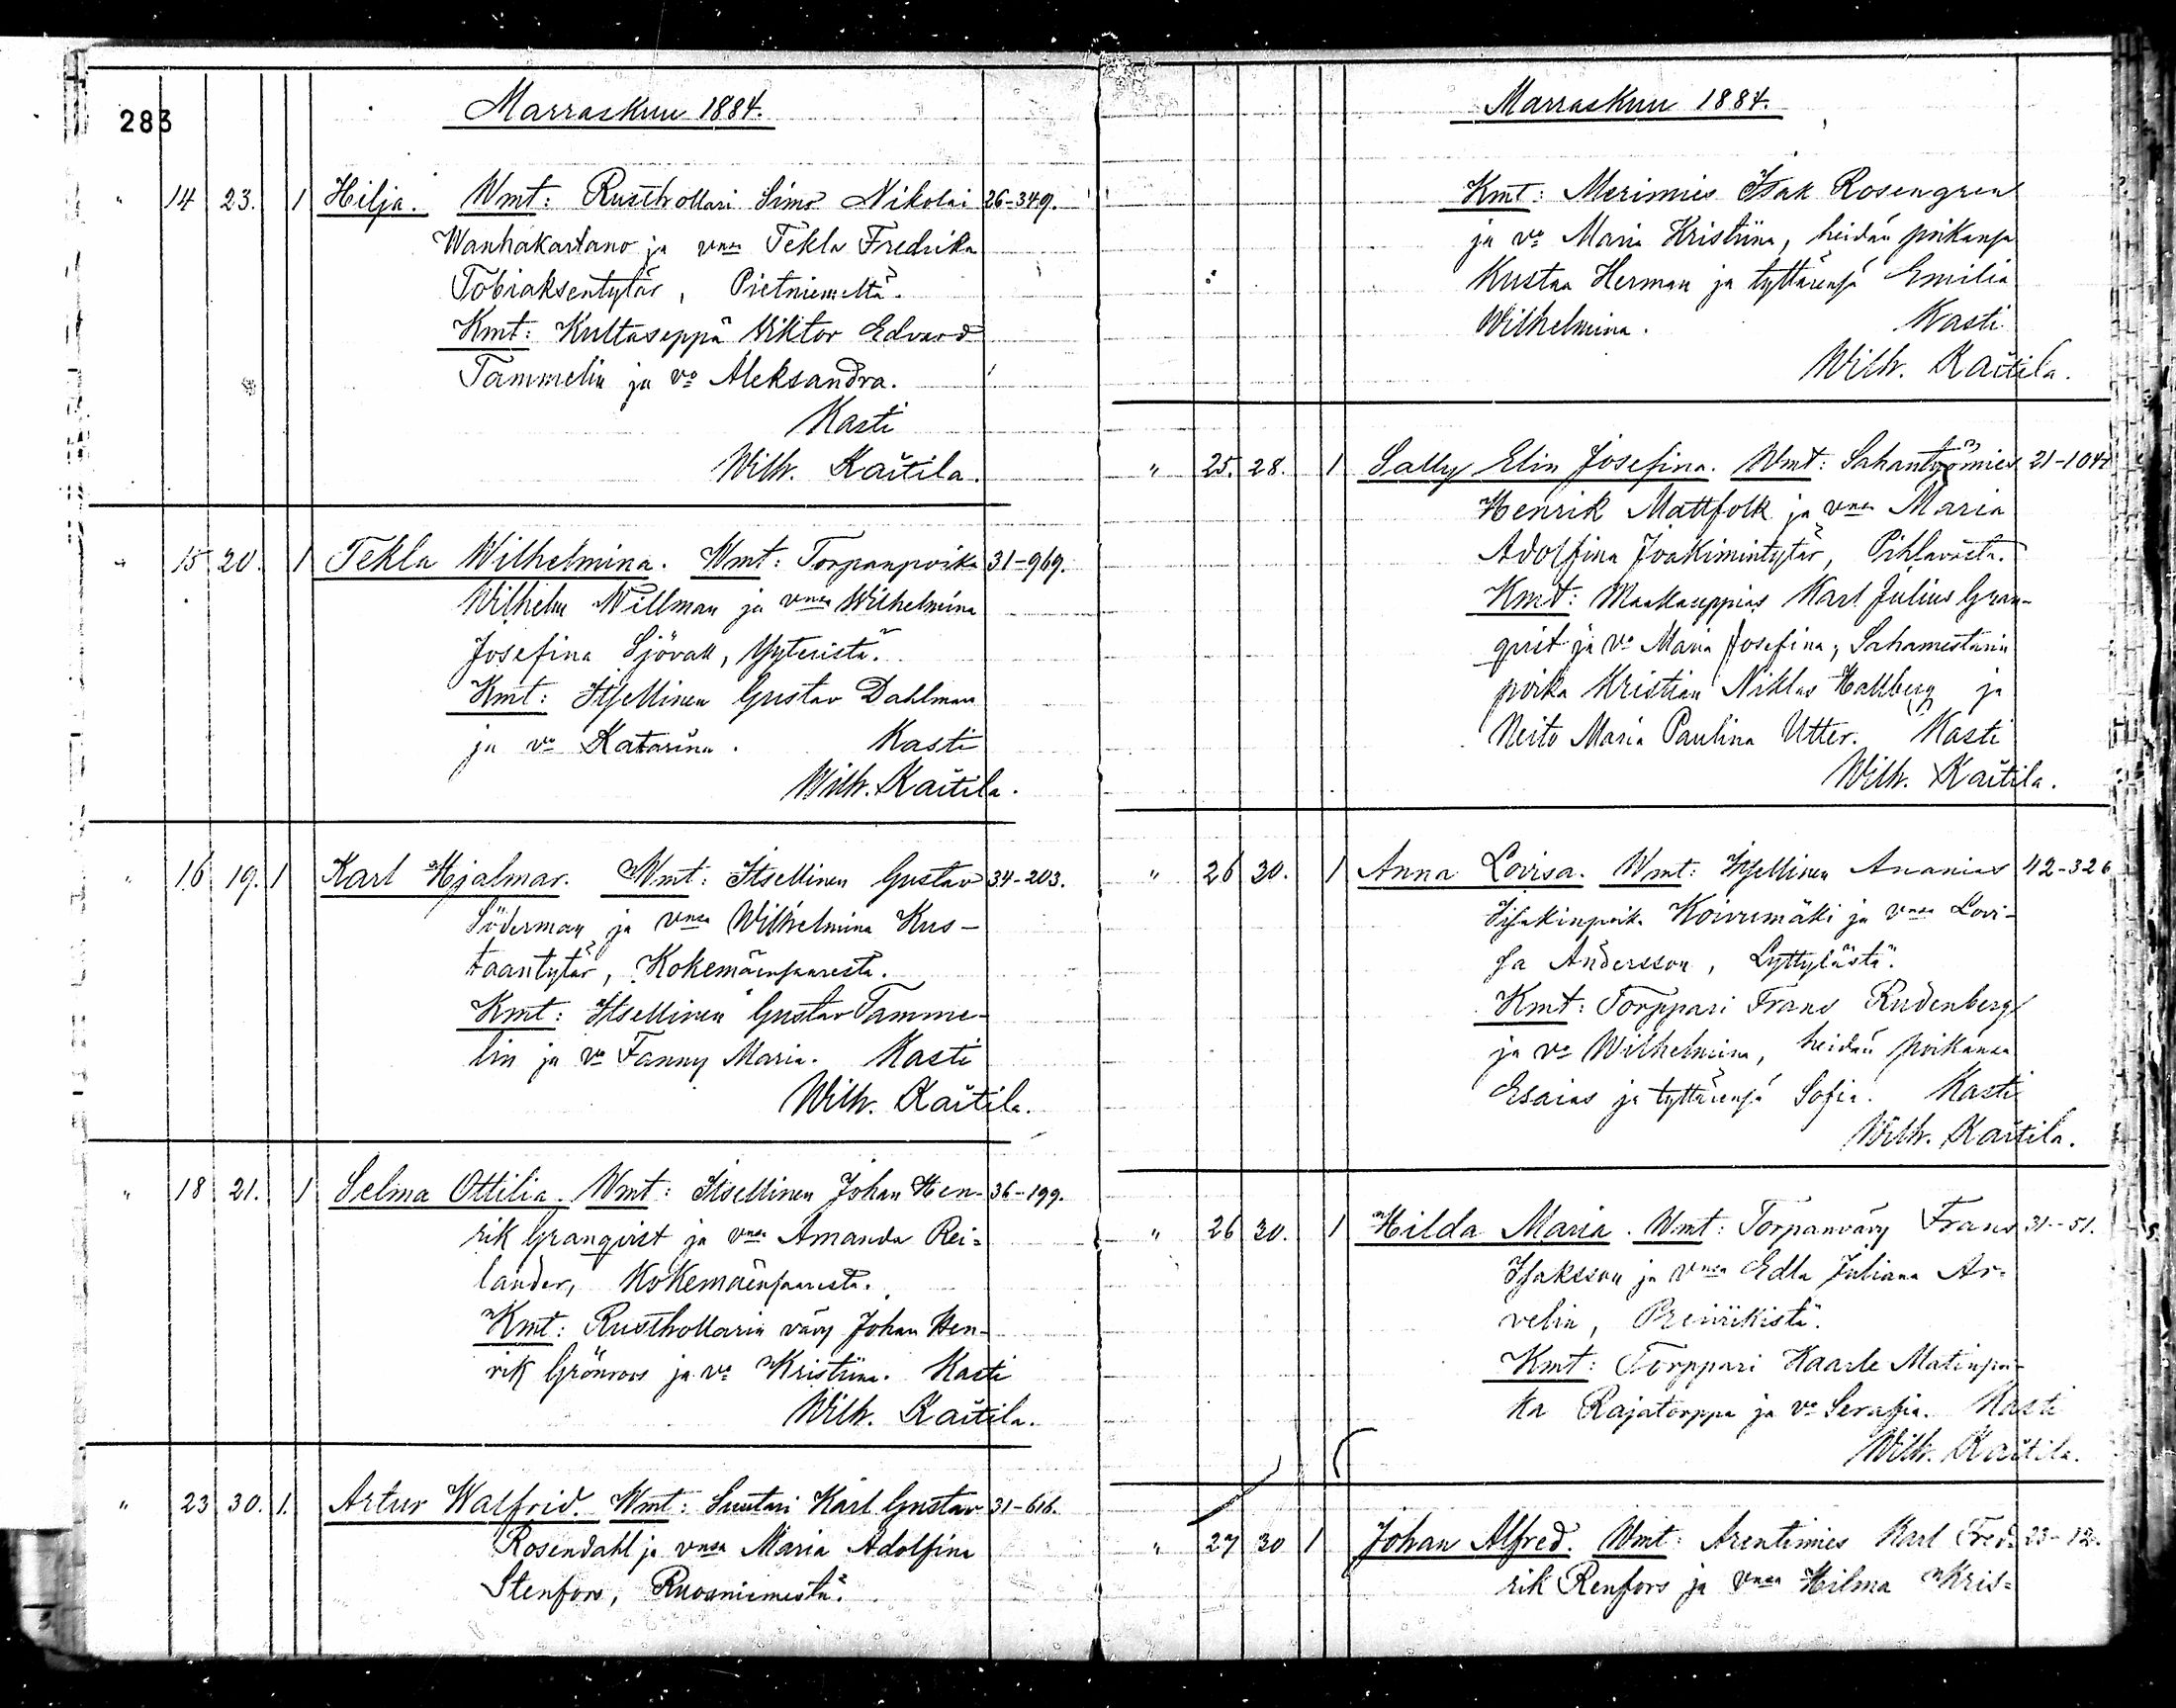 283
Marraskuu 1884.
" 14 23. 1 Hilja. Wmt: Rusthollari Simo Nikolai 26-349.
Wanhakartano ja vmsa Tekla Fredrika
Tobiaksentytär, Pietniemeltä.
Kmt: Kultaseppä Viktor Edvard
Tammelin ja vo Aleksandra.
Kasti
Wilh. Kaitila.
" 15 20. 1 Tekla Wilhelmina. Wmt: Torpanpoika 31-969.
Wilhelm Willman ja vmsa Wilhelmina
Josefina Sjövall, Yyteristä.
Kmt: Itsellinen Gustav Dahlman
ja vo Katarina. Kasti
Wilh. Kaitila.
" 16 19. 1 Karl Hjalmar. Wmt: Itsellinen Gustav 34-203.
Söderman ja vmsa Wilhelmina Kus-
taantytär, Kokemäensaaresta.
Kmt: Itsellinen Gustav Tamme-
lin ja vo Fanny Maria. Kasti
Wilh. Kaitila.
" 18 21. 1 Selma Ottilia. Wmt: Itsellinen Johan Hen- 36-199.
rik Granqvist ja vmsa Amanda Rei-
lander, Kokemäensaaresta.
Kmt: Rusthollarin vävy Johan Hen-
rik Grönroos ja vo Kristiina. Kasti
Wilh. Kaitila.
" 23 30. 1. Artur Walfrid. Wmt: Suutari Karl Gustav 31-616.
Rosendahl ja vmsa Maria Adolfina
Stenfors, Ruosniemestä.
Marraskuu 1884.
Kmt: Merimies Isak Rosengren
ja vo Maria Kristiina, heidän poikansa
Kustaa Herman ja tyttärensä Emilia
Wilhelmina. Kasti
Wilh. Kaitila.
" 25. 28. 1 Sally Elin Josefina. Wmt: Sahantyömies 21-1044
Henrik Mattfolk ja vmsa Maria
Adolfina Joakimintytär, Pihlavasta.
Kmt: Maakauppias Karl Julius Gran-
qvist ja vo Maria Josefina, Sahamestarin
poika Kristian Niklas Hallberg ja
Neito Maria Paulina Utter. Kasti
Wilh. Kaitila.
" 26 30. 1 Anna Lovisa. Wmt: Itsellinen Ananias 42-326
Iisakinpoika Koivumäki ja vmsa Lovi-
sa Andersson, Lyttylästä.
Kmt: Torppari Frans Rudenberg
ja vo Wilhelmina, heidän poikansa
Esaias ja tyttärensä Sofia. Kasti
Wilh. Kaitila.
" 26 30. 1 Hilda Maria. Wmt: Torpanvävy Frans 31-51.
Isaksson ja vmsa Edla Juliana Ar-
velin, Preiviikistä.
Kmt: Torppari Kaarle Matinpoi-
ka Rajatorppa ja vo Serafia. Kasti
Wilh. Kaitila.
" 27 30 1 Johan Alfred. Wmt: Arentimies Karl Fred- 23-12.
rik Renfors ja vmsa Hilma Kris-